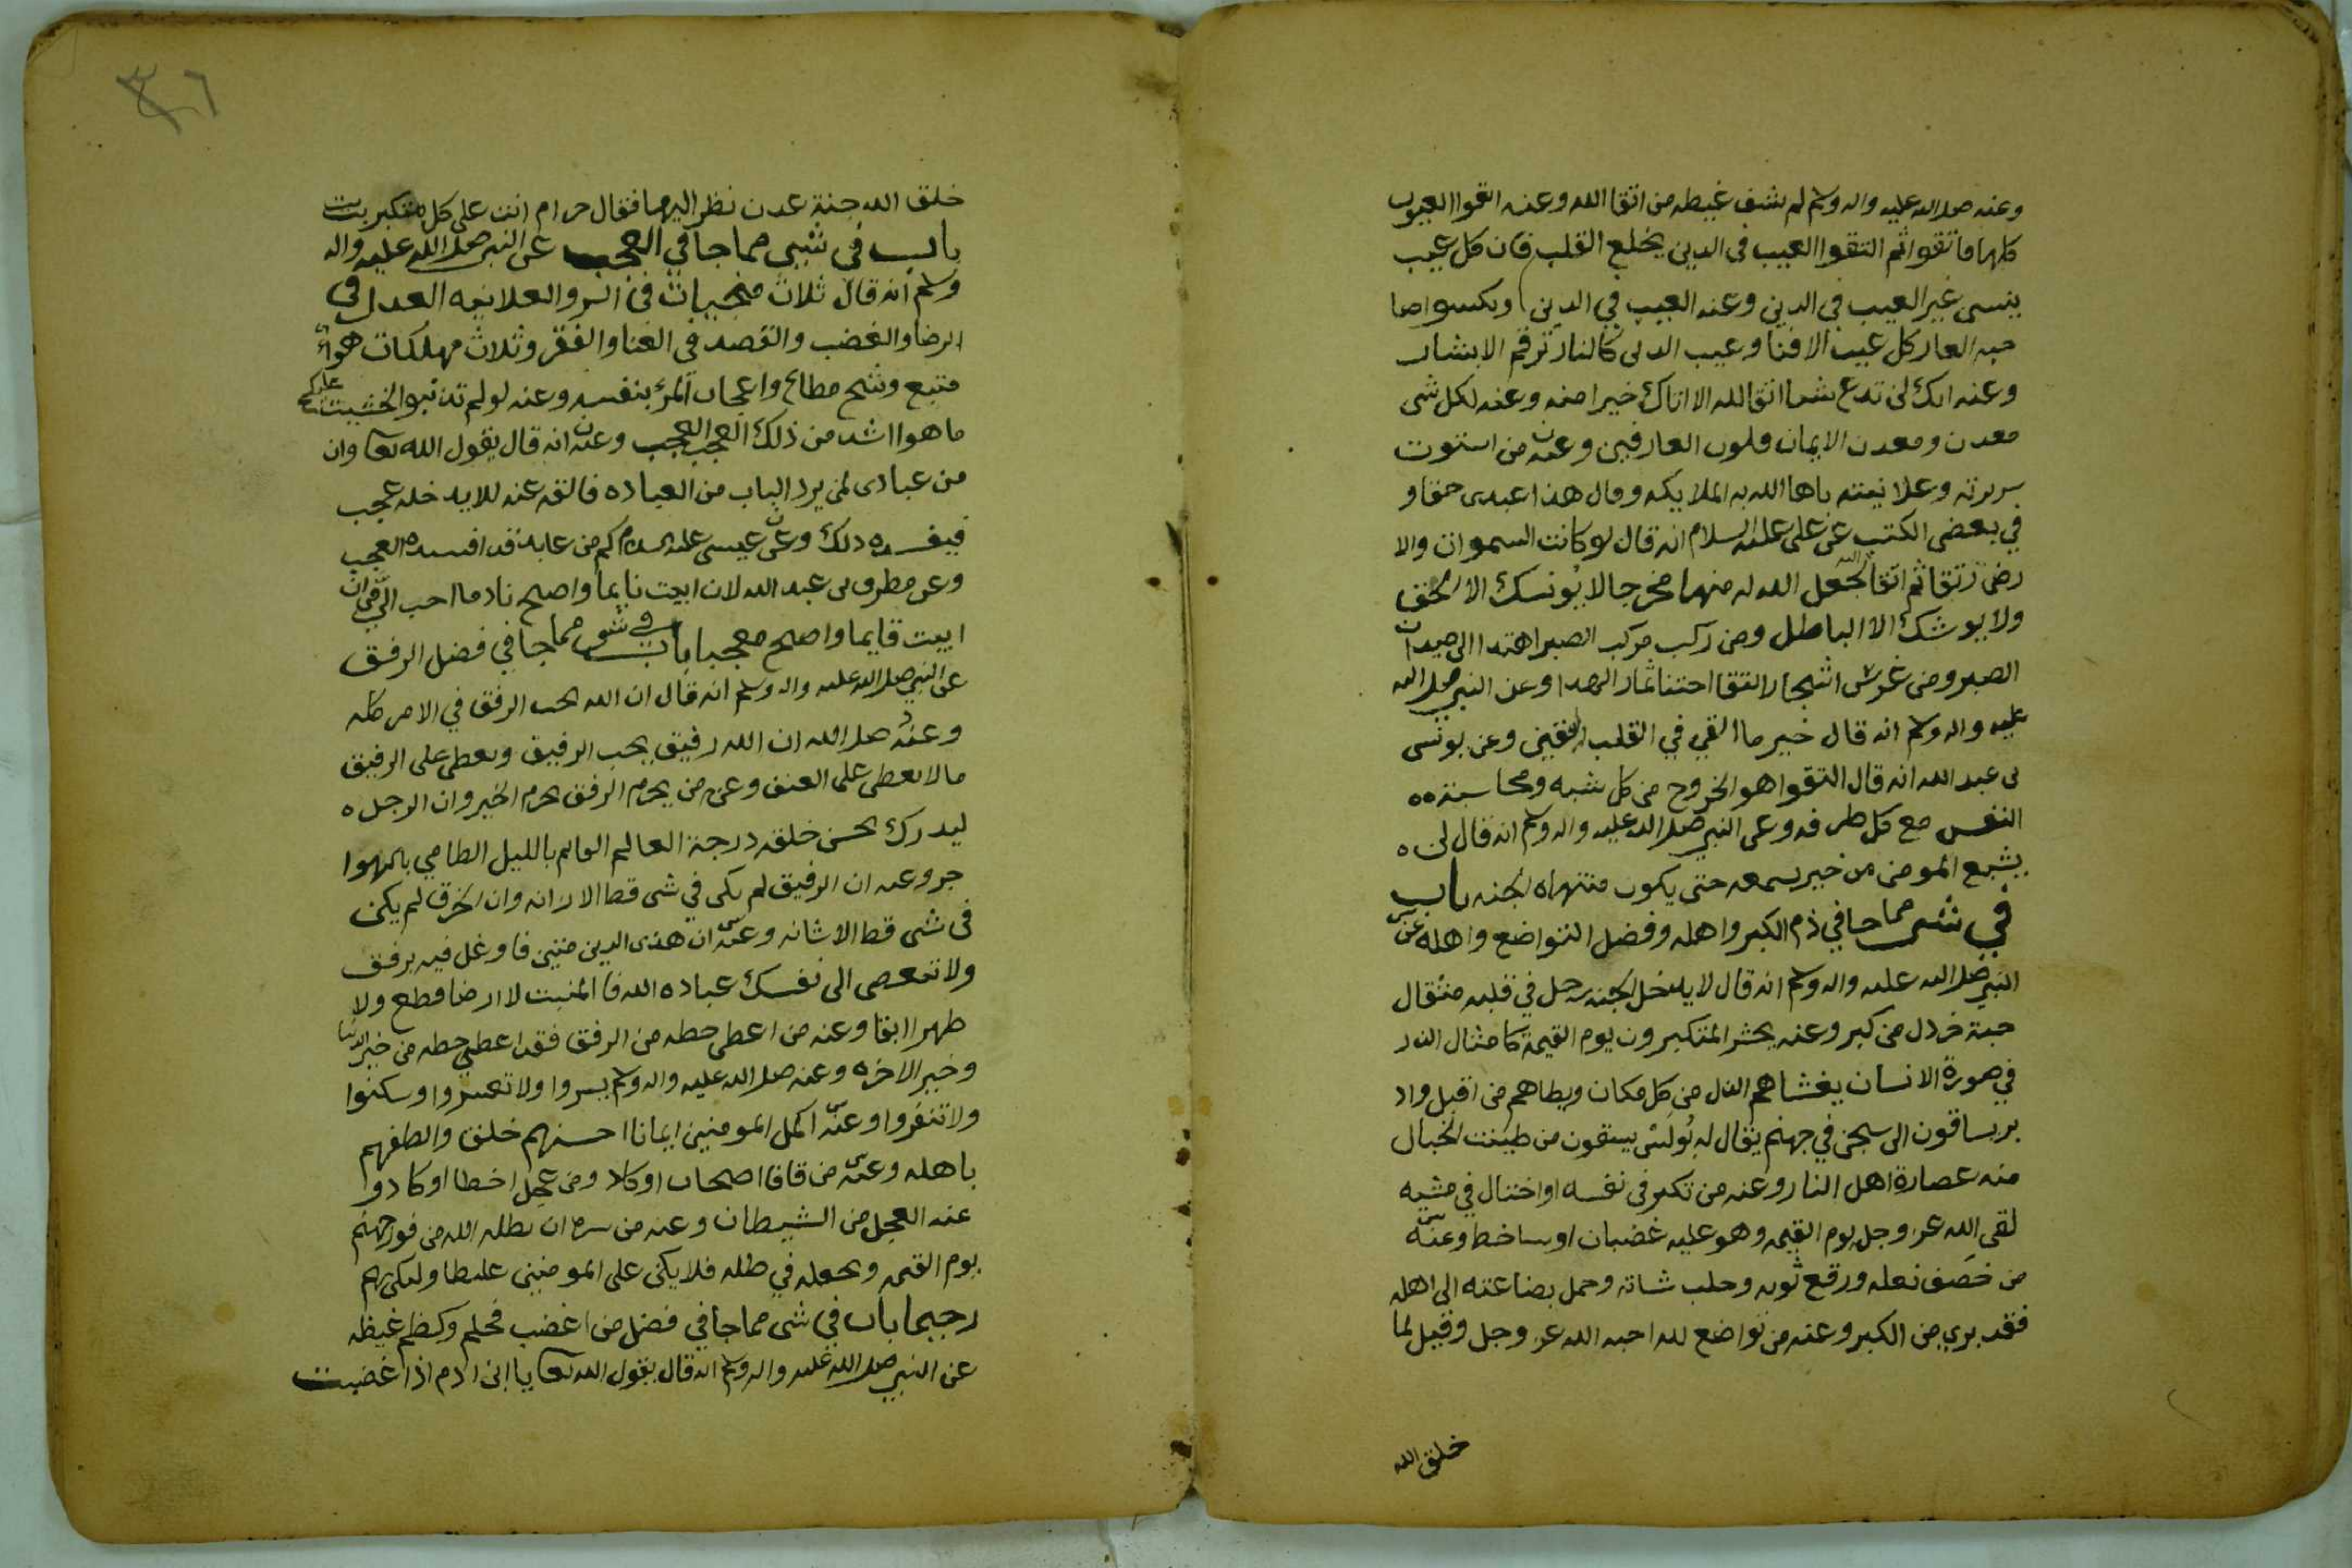 وعنه صلى الله عليه واله وسلم لم يشف غيظه من اتقا الله وعنه اتقوا العيوب
كلها فاتقوا ثم اتقوا العيب في الدين يخلع القلب فان كل عيب
ينسى غير العيب في الدين وعنه العيب في الدين
العار كل عيب الافنا وعيب الدين كالنار ترقم الابشار
وعنه انك لن تدع شيا اتقا لله الا اتاك خيرا منه وعنه لكل شى
معدن ومعدن الايمان قلوب العارفين وعنه من استوت
سريرته وعلانيته باها الله به الملايكه وقال هذا عبدى حقا و
في بعض الكتب عن على عليه السلام انه قال لو كانت السموات والا
رض رتقا ثم اتقا الله لجعل الله له منهما مخرجا لا يونسك الا الحق
ولا يوحشك الا الباطل ومن ركب مركب الصبر اهتدا الى ميدان
الصبر ومن غرس اشجار التقا اجتنا ثمار الهدا وعن النبي صلى الله
عليه واله وسلم انه قال خير ما القي في القلب اليقين وعن يونس
بن عبد الله انه قال التقوا هو الخروج من كل شبه ومحاسبة ه ه
النفس مع كل طرفه وعن النبي صلى الله عليه واله وسلم انه قال لن ه
يشبع المومن من خير يسمعه حتى يكون منتهاه الجنه باب
في شى مما جا في ذم الكبر واهله وفضل التواضع واهله عن
النبي صلى الله عليه واله وسلم انه قال لا يدخل الجنه رجل في قلبه مثقال
حبة خردل من كبر وعنه يحشر المتكبرون يوم القيمة كامثال الذر
في صورة الانسان يغشاهم الذل من كل مكان ويطاهم من اقبل واد
بر يساقون الى سجن في جهنم يقال له بولس يسقون من طينت الخبال
منه عصارة اهل النار وعنه من تكبر في نفسه او اختال في مشيه
لقى الله عز وجل يوم القيمه وهو عليه غضبان او ساخط وعنه
من خصف نعله ورقع ثوبه وحلب شاته وحمل بضاعته الى اهله
فقد بري من الكبر وعنه من تواضع لله احبه الله عز وجل وقيل لما
خلق الله
٣٦
خلق الله جنة عدن نظر اليها فقال حرام انت على كل متكبر
باب في شيى مما جا في العجب عن النبي صلى الله عليه واله
وسلم انه قال ثلاث منجيات في السر والعلانيه العدل في
الرضا والغضب والقصد في الغنا والفقر وثلاث مهلكات هوا
متبع وشح مطاع واعجاب المرء بنفسه وعنه لو لم تذنبوا لخشيت عليكم
ما هو اشد من ذلك العجب العجب وعنه انه قال يقول الله تعا وان
من عبادى لمن يريد الباب من العباده فاكفه عنه لئلا يدخله عجب
فيفسده ذلك وعن عيسى عليه السلام كم من عابد قد افسده العجب
وعن مطرف بن عبد الله لان ابيت نايما واصبح نادما احب الي من ان
ابيت قايما واصبح معجبا باب في شى مما جا في فضل الرفق
عن النبي صلى الله عليه واله وسلم انه قال ان الله يحب الرفق في الامر كله
وعنه صلى الله ان الله رفيق يحب الرفيق ويعطى على الرفيق
ما لا يعطى على العنف وعنه من يحرم الرفق يحرم الخير وان الرجل ه
ليدرك بحسن خلقه درجة العالم القايم بالليل الظامي بالهوا
جر وعنه ان الرفيق لم يكن في شى قط الا زانه وان الخرق لم يكن
في شى قط الا شانه وعنه ان هذى الدين متين فاوغل فيه برفق
ولا تبغض الى نفسك عباده الله فا المنبت لا ارضا قطع ولا
ظهرا ابقا وعنه من اعطى حظه من الرفق فقد اعطي حظه من خير الدنيا
وخير الاخره وعنه صلى الله عليه واله وسلم يسروا ولا تعسروا وسكنوا
ولا تنفروا وعنه اكمل المومنين ايمانا احسنهم خلق والطفهم
باهله وعنه من تانا اصحاب او كاد ومن عجل اخطا او كاد و
عنه العجل من الشيطان وعنه من سره ان يظله الله من فور جهنم
يوم القيمه ويجعله في ظله فلا يكن على المومنين غليظا وليكن بهم
رحيما باب في شى مما جا في فضل من اغضب فحلم وكظم غيظه
عن النبي صلى الله عليه واله وسلم انه قال يقول الله تعا يا ابن ادم اذا غضبت